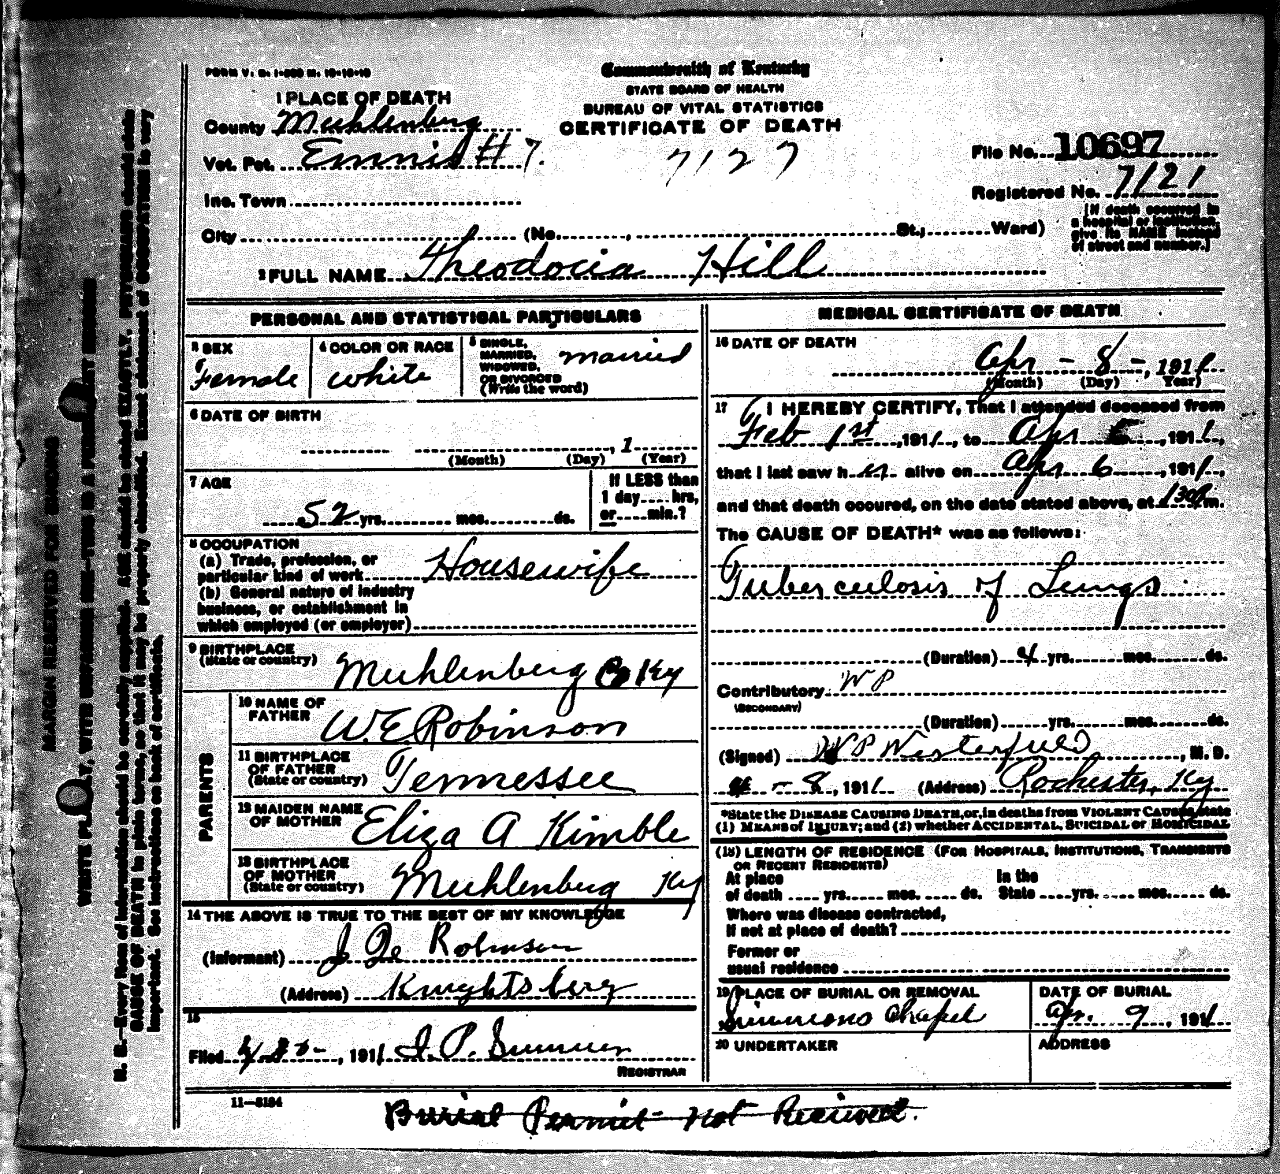 FORM V. S. 1-
Commonwealth of Kentucky
STATE BOARD OF HEALTH
BUREAU OF VITAL STATISTICS
CERTIFICATE OF DEATH
1 PLACE OF DEATH
County Muhlenburg
Vot. Pct. Ennis # 7.
7127
File No. 10697
Registered No. 7121
Inc. Town
City (No. , St.; Ward)
[If death occurred in a hospital or institution, give its NAME instead of street and number.]
2 FULL NAME Theodocia Hill
PERSONAL AND STATISTICAL PARTICULARS
3 SEX Female
4 COLOR OR RACE white
5 SINGLE, MARRIED, WIDOWED, OR DIVORCED (Write the word) married
6 DATE OF BIRTH
, 1
(Month) (Day) (Year)
7 AGE
52 yrs. mos. ds.
If LESS than 1 day hrs, or min.?
8 OCCUPATION
(a) Trade, profession, or particular kind of work Housewife
(b) General nature of industry business, or establishment in which employed (or employer)
9 BIRTHPLACE (State or country) Muhlenburg Co Ky
PARENTS
10 NAME OF FATHER W. E Robinson
11 BIRTHPLACE OF FATHER (State or country) Tennessee
12 MAIDEN NAME OF MOTHER Eliza A Kimble
13 BIRTHPLACE OF MOTHER (State or country) Muhlenburg Ky
14 THE ABOVE IS TRUE TO THE BEST OF MY KNOWLEDGE
(Informant) Robinson
(Address) Knightsberg
15
Filed , 1911 I. P.
REGISTRAR
11-5184
MEDICAL CERTIFICATE OF DEATH
16 DATE OF DEATH
Apr - 8 -, 1911
(Month) (Day) (Year)
17 I HEREBY CERTIFY, That I attended deceased from
Feb 1st, 1911, to Apr , 1911,
that I last saw her alive on Apr 6, 1911,
and that death occured, on the date stated above, at 130 m.
The CAUSE OF DEATH* was as follows:
Tuberculosis of Lungs
(Duration) 4 yrs. mos. ds.
Contributory W P
(SECONDARY)
(Duration) yrs. mos. ds.
(Signed) W P Westerfield, M. D.
4 - 8, 1911 (Address) Rochester, Ky
*State the DISEASE CAUSING DEATH, or, in deaths from VIOLENT CAUSES, state
(1) MEANS of INJURY; and (2) whether ACCIDENTAL, SUICIDAL or HOMICIDAL
(18) LENGTH OF RESIDENCE (FOR HOSPITALS, INSTITUTIONS, TRANSIENTS OR RECENT RESIDENTS)
At place of death yrs. mos. ds. In the State yrs. mos. ds.
Where was disease contracted,
If not at place of death?
Former or
usual residence
19 PLACE OF BURIAL OR REMOVAL Simmons Chapel
DATE OF BURIAL Ap. 9, 1911
20 UNDERTAKER
ADDRESS
Burial Permit not Recieved.
MARGIN RESERVED FOR BINDING
WRITE PLAINLY, WITH UNFADING INK—THIS IS A PERMANENT RECORD
N. B.—Every item of information should be carefully supplied. AGE should be stated EXACTLY. PHYSICIANS should state
CAUSE OF DEATH in plain terms, so that it may be properly classified. Exact statement of OCCUPATION is very
important. See instructions on back of certificate.